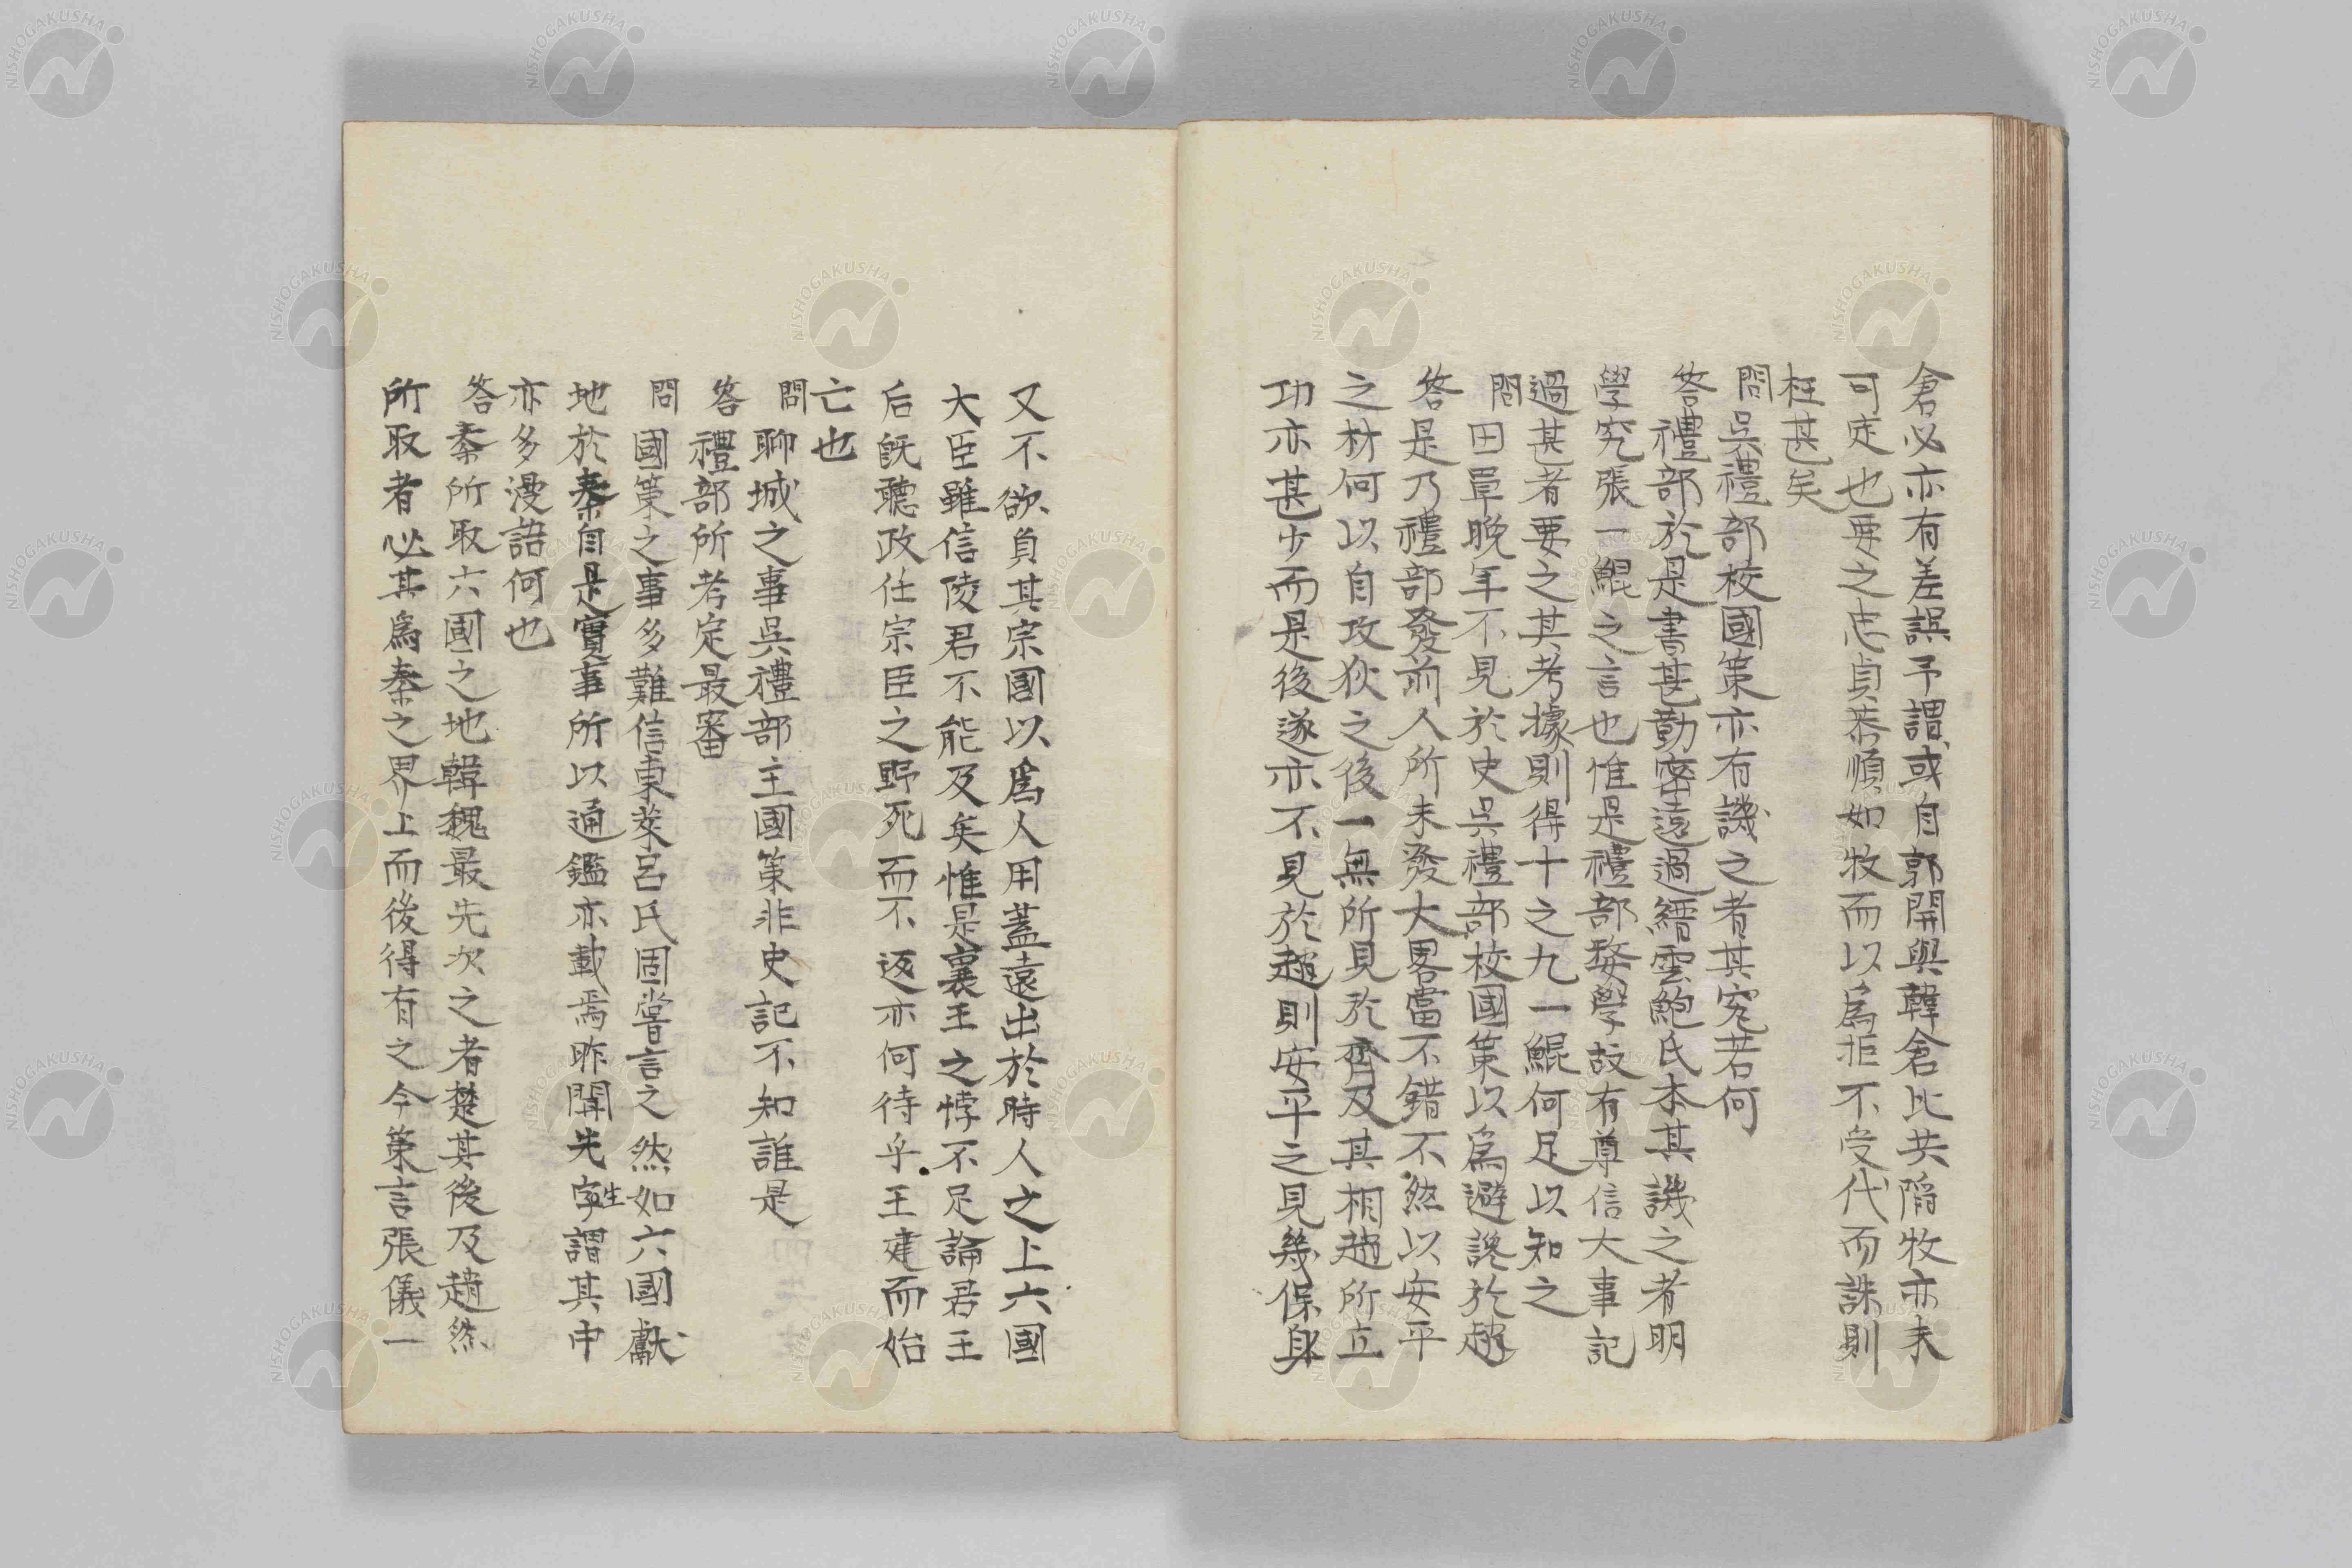 倉必亦有差誤予謂或自郭開與韓倉比共陷牧亦未
可定也要之忠貞恭順如牧而以爲拒不受代而誅則
枉甚矣
問吳禮部校國策亦有譏之者其究若何
答禮部於是書甚勤密遠過縉雲鮑氏本其譏之者明
學究張一鯤之言也惟是禮部婺學故有尊信大事記
過甚者要之其考據則得十之九一鯤何足以知之
問田單晚年不見於史吳禮部校國策以爲避讒於趙
答是乃禮部發前人所未發大畧當不錯不然以安平
之材何以自攻狄之後一無所見於齊及其相趙所立
功亦甚少而是後遂亦不見於趙則安平之見幾保身
又不欲負其宗國以爲人用蓋遠出於時人之上六國
大臣雖信陵君不能及矣惟是襄王之悖不足論君王
后既聽政任宗臣之野死而不返亦何待乎王建而始
亡也
問聊城之事吳禮部主國策非史記不知誰是
答禮部所考定最審
問國策之事多難信東萊呂氏固嘗言之然如六國獻
地於秦自是實事所以通鑑亦載焉昨聞先生字謂其中
亦多漫語何也
答秦所取六國之地韓魏最先次之者楚其後及趙然
所取者必其爲秦之界上而後得有之今策言張儀一
NISHOGAKUSHA